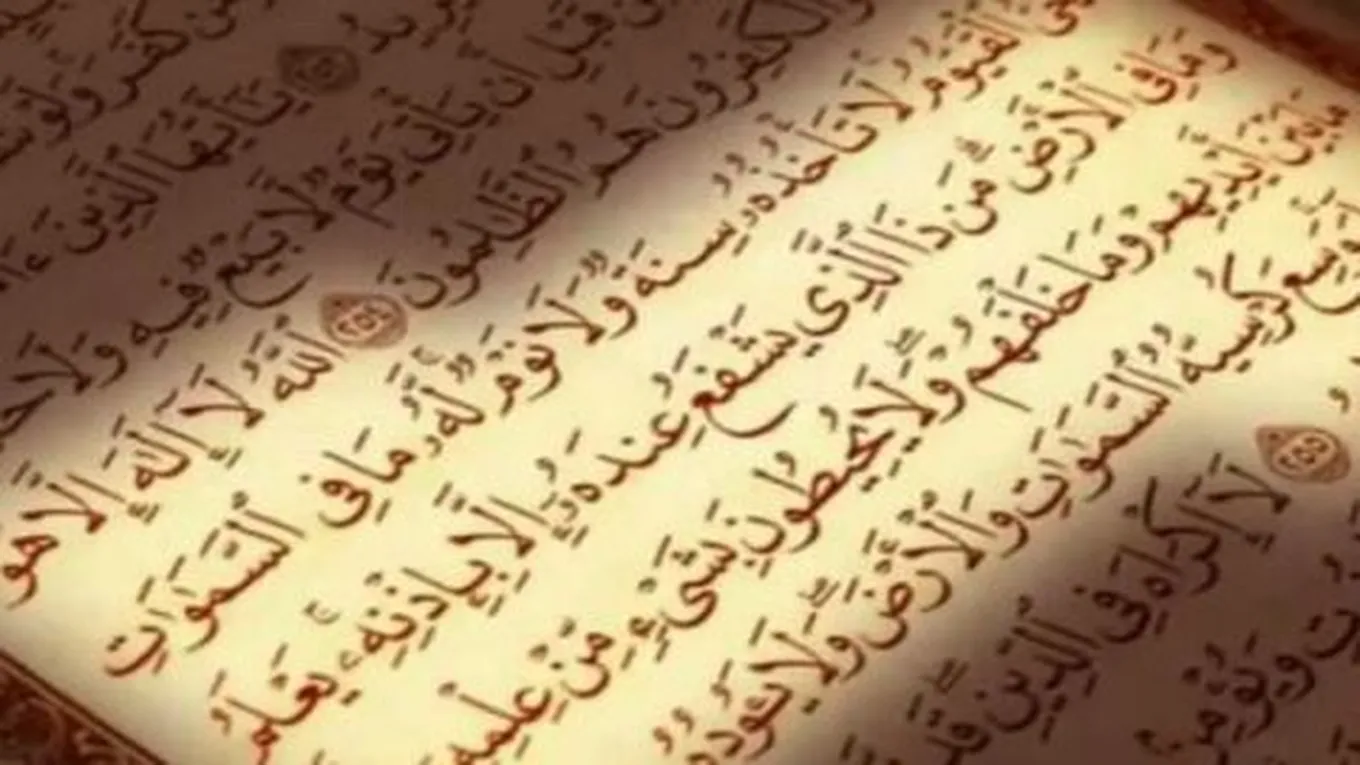 من كفر ولو
يريد ٢٥٣ يَٰٓأَيُّهَا ٱلَّذِينَ
قَبْلِ أَن يَأْتِىَ يَوْمٌ لَّا بَيْعٌ فِيهِ وَلَا
وَٱلْكَٰفِرُونَ هُمُ ٱلظَّٰلِمُونَ ٢٥٤ ٱللَّهُ لَآ إِلَٰهَ إِلَّا هُوَ
ٱلْقَيُّومُ لَا تَأْخُذُهُۥ سِنَةٌ وَلَا نَوْمٌ لَّهُۥ مَا فِى ٱلسَّمَٰوَٰتِ
وَمَا فِى ٱلْأَرْضِ مَن ذَا ٱلَّذِى يَشْفَعُ عِندَهُۥٓ إِلَّا بِإِذْنِهِۦ يَعْلَمُ
مَا بَيْنَ أَيْدِيهِمْ وَمَا خَلْفَهُمْ وَلَا يُحِيطُونَ بِشَىْءٍ مِّنْ عِلْمِهِۦٓ
وَسِعَ كُرْسِيُّهُ ٱلسَّمَٰوَٰتِ وَٱلْأَرْضَ وَلَا يَـُٔودُهُۥ
٢٥٥ لَآ إِكْرَاهَ فِى ٱلدِّينِ قَد
وَيُؤْمِنۢ